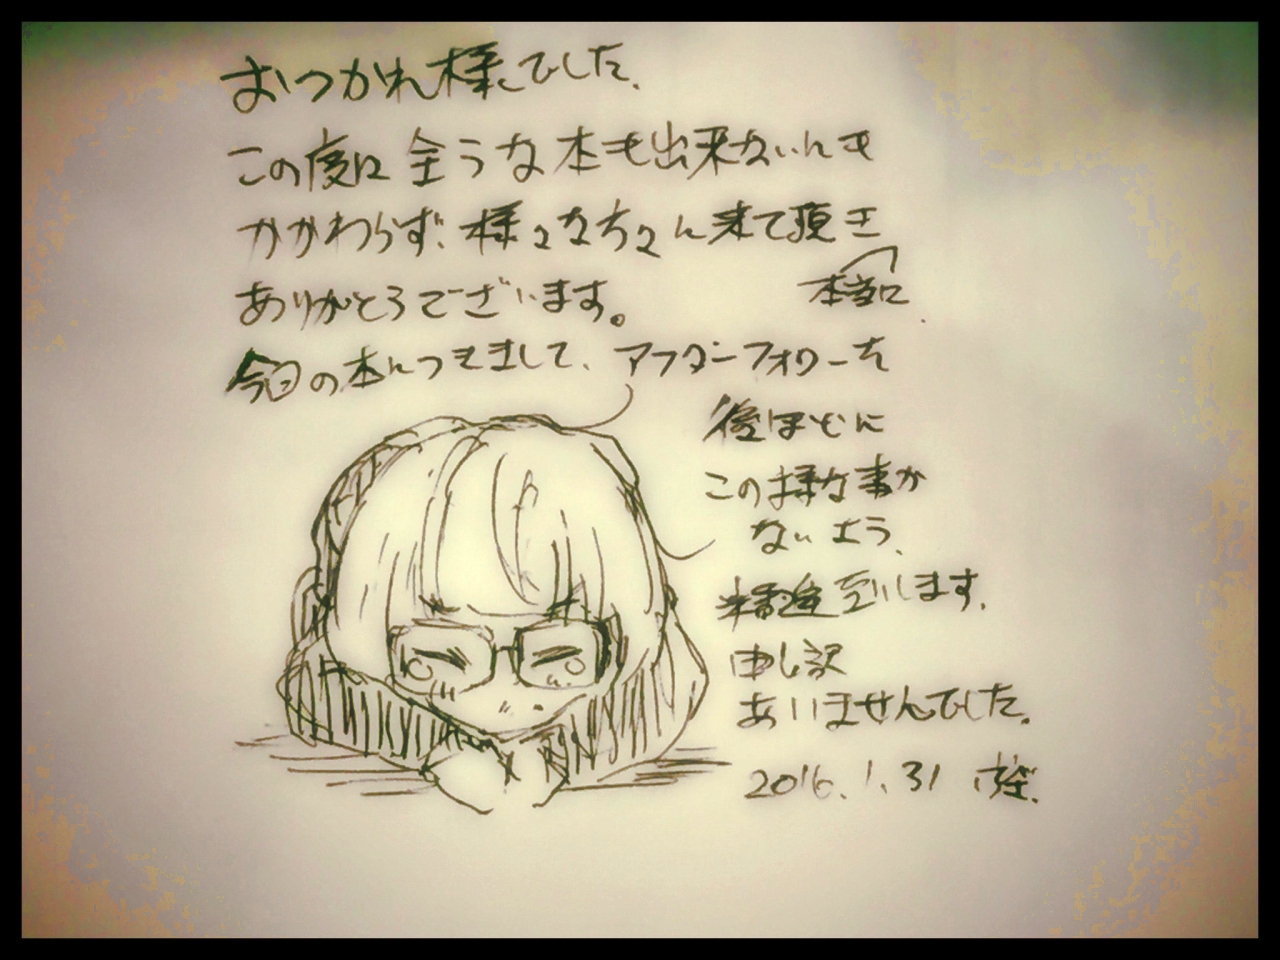 おつかれ様でした。
この度は全うな本も出来ないんも
かかわらず、様々な方々に来て頂き
本当に
ありがとうございます。
今回の本につきまして、アフターフォローを
後ほどに
この様な事が
ないよう、
精進致します。
申し訳
ありませんでした。
2016.1.31